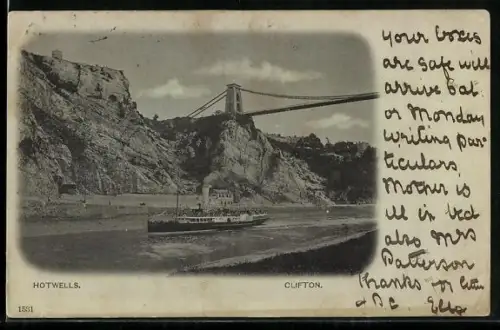 your boxes
are safe will
arrive Sat.
or Monday
writing par
ticulars.
Mother is
ill in bed
also Mrs
Patterson
thanks for letter
& P.C. Ella
HOTWELLS.
CLIFTON.
1531